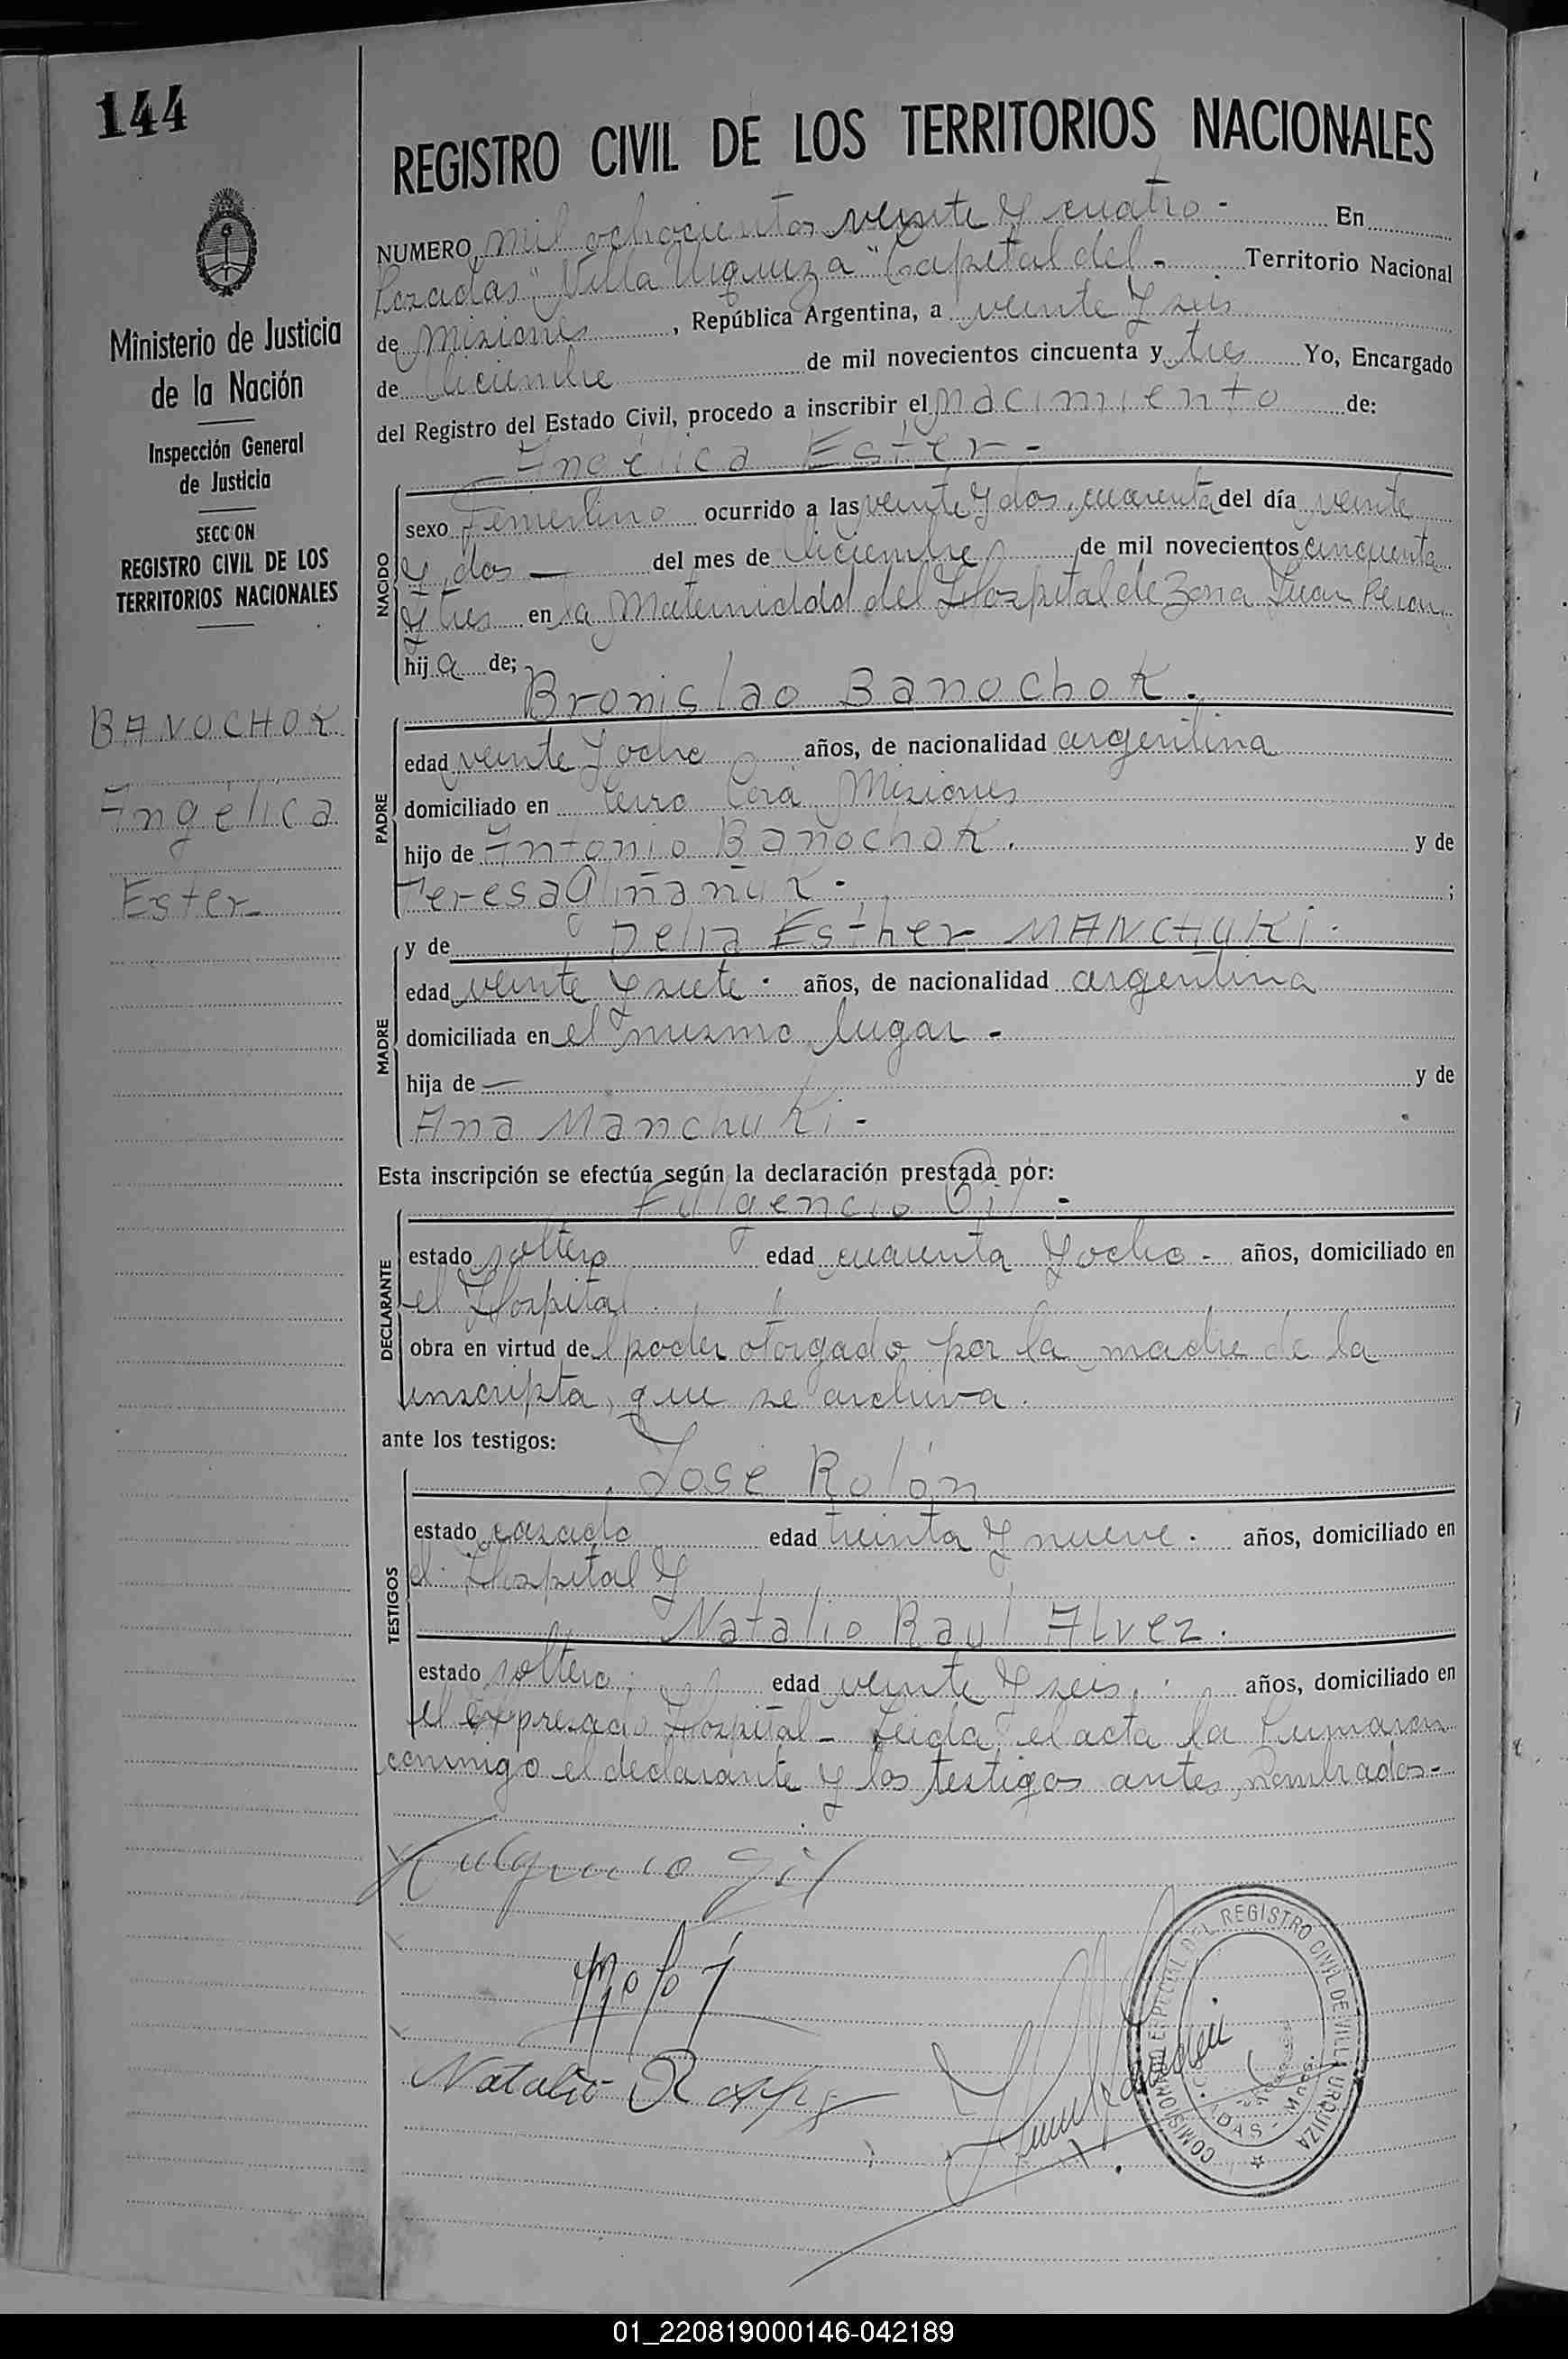 144
REGISTRO CIVIL DE LOS TERRITORIOS NACIONALES
Ministerio de Justicia
de la Nación
Inspección General
de Justicia
SECCION
REGISTRO CIVIL DE LOS
TERRITORIOS NACIONALES
BANOCHOK
Angélica
Ester
NUMERO mil ochocientos veinte y cuatro - En
Posadas "Villa Urquiza" Capital del - Territorio Nacional
de Misiones, República Argentina, a veinte y seis
de Diciembre de mil novecientos cincuenta y tres Yo, Encargado
del Registro del Estado Civil, procedo a inscribir el nacimiento de:
Angélica Ester -
NACIDO
sexo Femenino ocurrido a las veinte y dos, cuarenta del día veinte
y dos — del mes de Diciembre de mil novecientos cincuenta
y tres en la Maternidad del Hospital de Zona Juan Peron
hija de;
Bronislao Banochok.
PADRE
edad veinte y ocho años, de nacionalidad argentina
domiciliado en Cerro Corá Misiones
hijo de Antonio Banochok. y de
Teresa ;
y de Delia Esther MANCHUKi.
MADRE
edad veinte y siete. años, de nacionalidad argentina
domiciliada en el mismo lugar -
hija de — y de
Ana Manchuki -
Esta inscripción se efectúa según la declaración prestada por:
Fulgencio Gil -
DECLARANTE
estado soltero edad cuarenta y ocho - años, domiciliado en
el Hospital.
obra en virtud del poder otorgado por la madre de la
inscripta, que se archiva.
ante los testigos:
José Rolón
TESTIGOS
estado casado edad treinta y nueve. años, domiciliado en
el Hospital y
Natalio Raul Alvez.
estado soltero; edad veinte y seis, años, domiciliado en
el expresado Hospital - Leida el acta la firmaron
conmigo el declarante y los testigos antes nombrados -
Fulgencio Gil
Natalio R
COMISIONADO ESPECIAL DEL REGISTRO CIVIL DE VILLA URQUIZA
01_220819000146-042189